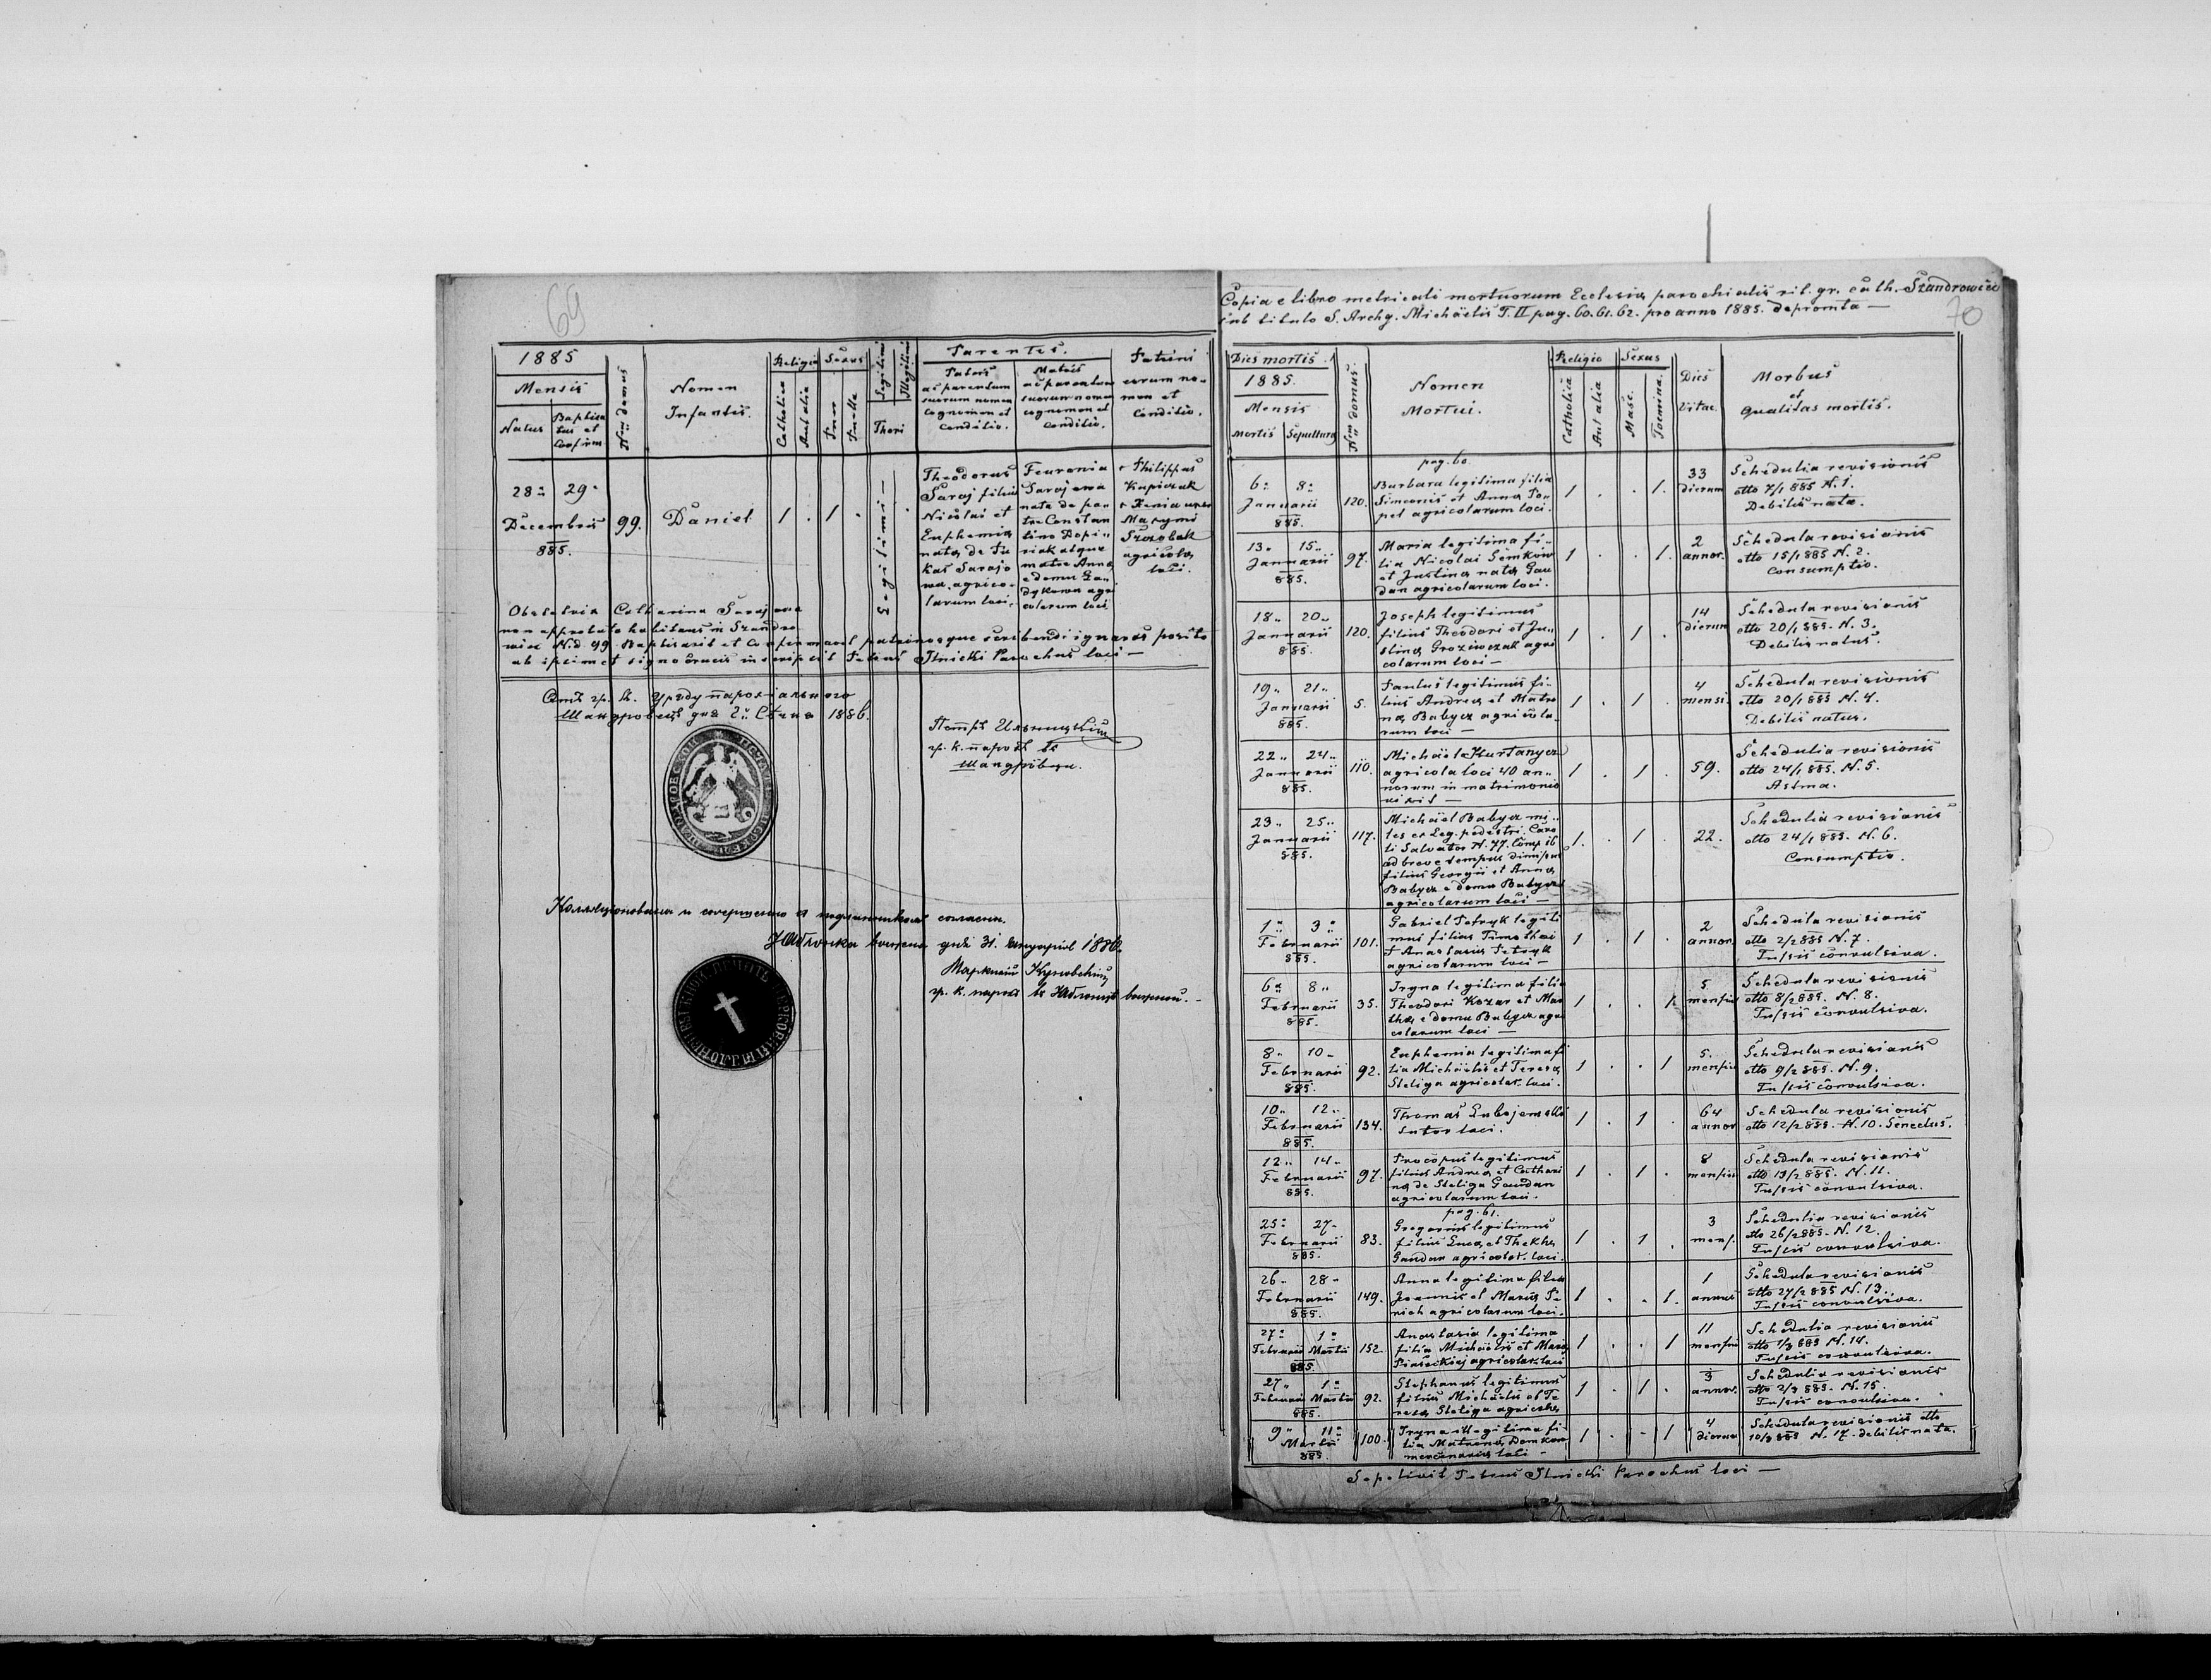 69
1885
Mensis
Natus
Baptisa
tus et
Confirm.
Nus domus
Nomen
Infantis.
Religio
Catholica
Aut alia
Sexus
Puer
Puella
Legitimi
Illegitimi
Thori
Parentes.
Patris
ac parentum
suorum nomen
cognomen et
conditio.
Matris
ac parentum
suorum nomen
cognomen et
conditio.
Patrini
eorum no-
men et
Conditio.
28. 29.
Decembris
885.
99.
Daniel
1 . 1 .
Legitimi
Theodorus
Saraj filius
Nicolai et
Euphemia
nata de Lu
kas Sarajo
wa, agrico-
larum loci.
Feuronia
Sarajowa
nata de pa-
tre Constan
tino Dopi-
riak atque
matre Anna
e domo
agri
colarum loci
+ Philippus
+ Xenia uxor
Maxymi
agricola
loci.
Obstetrix Catharina Sarajowa
non approbata habitans in Szandro
wiec N.d. 99. Baptisavit et Confirmavit patrinosque scribendi ignaros posito
ab ipsimet signo crucis inscripsit Petrus Ilnicki Parochus loci —
Отъ гр. к. Уряду парохіального
Шандровець дня 2. Січня 1886.
Петръ Ильницкій
гр. к. парох въ
Шандровци.
Колляціонована и совершенно съ подлинникомъ согласна.
Яблонка дня 31. януарія 1886.
гр. к. парох въ
Copia e libro metricali mortuorum Ecclesia parochialis rit. gr. cath. Szandrowiec
sub titulo S. Archg. Michaëlis T. II pag. 60. 61. 62. pro anno 1885. depromta —
70
Dies mortis
1885.
Mensis
Mortis Sepultura
Nrus domus.
Nomen
Mortui.
Religio
Catholica
Aut alia
Sexus
Masc.
Foemina.
Dies
Vitae.
Morbus
et
qualitas mortis.
pag. 60.
6. 8.
Januarii
885.
120.
Barbara legitima filia
Simeonis et Anna Po-
pel agricolarum loci.
1 . . 1.
33
dierum
Schedula revisionis
dtto 7/1 885 N. 1.
Debilis nata.
13. 15.
Januarii
885.
97.
Maria legitima fi-
lia Nicolai Semkow
et Justina nata Gau
dan agricolarum loci.
1 . . 1.
2
annor.
Schedula revisionis
dtto 15/1 885 N. 2.
Consumptio.
18. 20.
Januarii
885.
120.
Joseph legitimus
filius Theodori et Ju-
stina Groziwczak agri
colarum loci —
1 . 1 .
14
dierum
Schedula revisionis
dtto 20/1 885. N. 3.
Debilis natus.
19. 21.
Januarii
885.
5.
Paulus legitimus fi-
lius Andrea et Matro
na Babycz agricola-
rum loci —
1 . 1 .
4
mensi
Schedula revisionis
dtto 20/1 885 N. 4.
Debilis natus.
22. 24.
Januarii
885.
110.
Michaël Kurtanycz
agricola loci 40 an-
norum in matrimonio
vixit —
1 . 1 .
59.
Schedula revisionis
dtto 24/1 885. N. 5.
Astma.
23. 25.
Januarii
885.
117.
Michaël Babycz mi-
les ex Leg. pedestri Caro
li Salvator N. 77. Comp 16
ad breve tempus dimissus
filius Georgii et Anna
Babycz e domo Babycz
agricolarum loci —
1. . 1 .
22.
Schedula revisionis
dtto 24/1 885. N. 6.
Consumptio.
1. 3.
Februarii
885.
101.
Gabriel Petryk legiti
mus filius Timothei
et Anastasia Petryk
agricolarum loci —
1 . 1 .
2
annor.
Schedula revisionis
dtto 2/2 885 N. 7.
Tussis convulsiva.
6. 8.
Februarii
885.
35.
Iryna legitima filia
Theodori Kozar et Mar
tha e domo Babycz agri
colarum loci —
1 . . 1.
5
mensiu
Schedula revisionis
dtto 8/2 885. N. 8.
Tussis convulsiva.
8. 10.
Februarii
885.
92.
Euphemia legitima fi
lia Michaëlis et Teresa
Steliga agricolar. loci.
1 . . 1
5.
mensiu
Schedula revisionis
dtto 9/2 885. N. 9.
Tussis convulsiva.
10. 12.
Februarii
885.
134.
Thomas
Sutor loci.
1 . 1 .
64
annor
Schedula revisionis
dtto 12/2 885. N. 10. Senectus.
12. 14.
Februarii
885.
97.
Procopus legitimus
filius Andrea et Cathari
na de Steliga Gaudan
agricolarum loci.
1 . 1 .
8
mensiu
Schedula revisionis
dtto 13/2 885. N. 11.
Tussis convulsiva.
pag. 61.
25. 27.
Februarii
885.
83.
Gregorius legitimus
filius Luca et Thekla
Gaudan agricolar. loci.
1 . 1 .
3
mens.
Schedula revisionis
dtto 26/2 885. N. 12.
Tussis convulsiva.
26. 28.
Februarii
885.
149.
Anna legitima filia
Joannis et Maria Pe
nich agricolarum loci.
1 . . 1.
1
annus
Schedula revisionis
dtto 27/2 885 N. 13.
Tussis convulsiva.
27. 1.
Februarii Martii
885.
152
Anastasia legitima
filia Michaëlis et Maria
agricolar. loci
1 . . 1
11
mensiu
Schedula revisionis
dtto 1/3 885 N. 14.
Tussis convulsiva.
27. 1.
Februarii Martii
885.
92.
Stephanus legitimus
filius Michaëlis et Te
resa Steliga agricolar
1 . 1 .
3
annor.
Schedula revisionis
dtto 2/3 885. N. 15.
Tussis convulsiva.
9. 11.
Martii
885.
100.
Iryna illegitima fi
lia Matrona Demkow
mercenaria loci —
1 . . 1
4
dierum
Schedula revisionis dtto
10/3 885 N. 17. debilis nata.
Sepelivit Petrus Ilnicki Parochus loci —